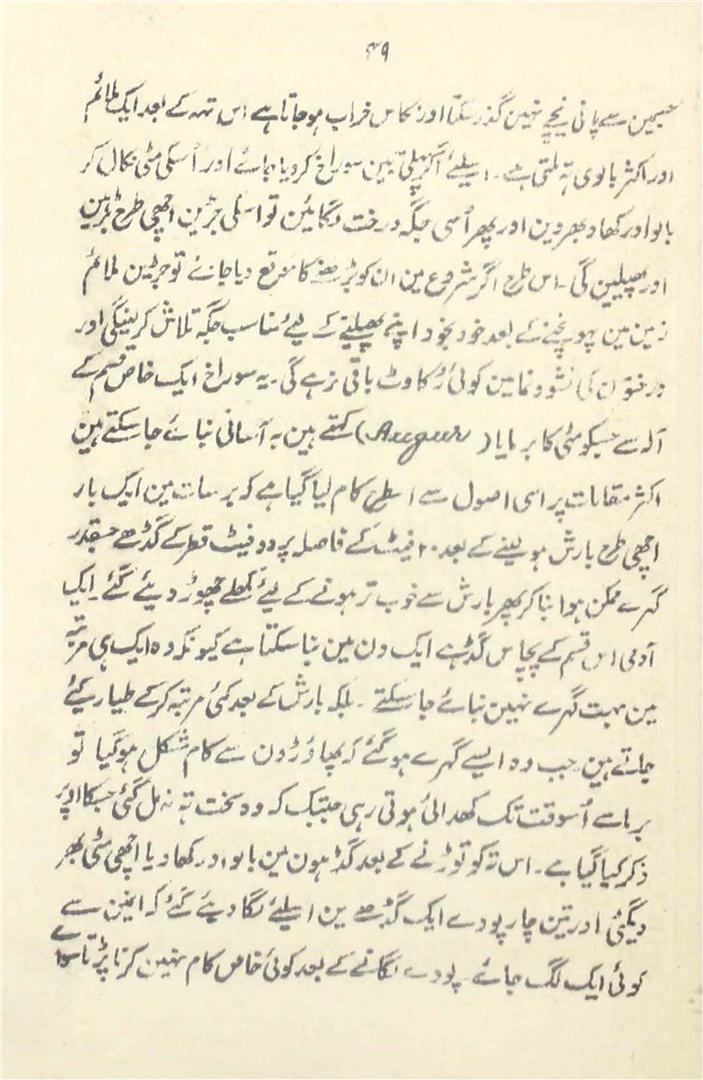 ۴۹
جسمین سے پانی نیچے نہین گذر سکتا اور نکاس خراب ہو جاتا ہے اس تہہ کے بعد ایک ملائم
اور اکثر بالوی تہ ملتی ہے۔ اسلیئے اگر پہلی تہین سوراخ کر دیا جائے اور اُسکی مٹی نکال کر
بالو اور کھاد بھر دین اور پھر اُسی جگہ درخت لگائین تو اسکی جڑین اچھی طرح بڑہین
اور پھیلین گی۔ اس طرح اگر شروع مین ان کو بڑھنے کا موقع دیا جائے تو جڑین ملائم
زمین مین پہونچنے کے بعد خود بخود اپنے پھیلنے کے لیئے مناسب جگہ تلاش کر لینگی اور
درختون کی نشو و نما مین کوئی رُکاوٹ باقی نرہے گی۔ یہ سوراخ ایک خاص قسم کے
آلہ سے جسکو مٹی کا برمایا (Augur) کہتے ہین بہ آسانی بنائے جا سکتے ہین
اکثر مقامات پر اسی اصول سے اسطرح کام لیا گیا ہے کہ برسات مین ایک بار
اچھی طرح بارش ہو لینے کے بعد ۲۰ فیٹ کے فاصلہ پر دو فیٹ قطر کے گڈھے جسقدر
گہرے ممکن ہوا بنا کر پھر بارش سے خوب تر ہونے کے لیئے کھلے چھوڑ دیئے گئے۔ ایک
آدمی اس قسم کے پچاس گڈہے ایک دن مین بنا سکتا ہے کیونکہ وہ ایک ہی مرتبہ
مین بہت گہرے نہین بنائے جا سکتے۔ بلکہ بارش کے بعد کئی مرتبہ کر کے طیار کیئے
جاتے ہین۔ جب وہ ایسے گہرے ہو گئے کہ پھاوڑون سے کام مشکل ہو گیا تو
برما سے اُسوقت تک کھدائی ہوتی رہی جبتک کہ وہ سخت تہ نہ مل گئی جسکا اوپر
ذکر کیا گیا ہے۔ اس تہ کو توڑنے کے بعد گڈہون مین بالو اور کھاد یا اچھی مٹی بھر
دیگئی اور تین چار پودے ایک گڈھے مین اسلیئے لگا دیئے گئے کہ انمین سے
کوئی ایک لگ جائے۔ پودے لگانے کے بعد کوئی خاص کام نہین کرنا پڑتا